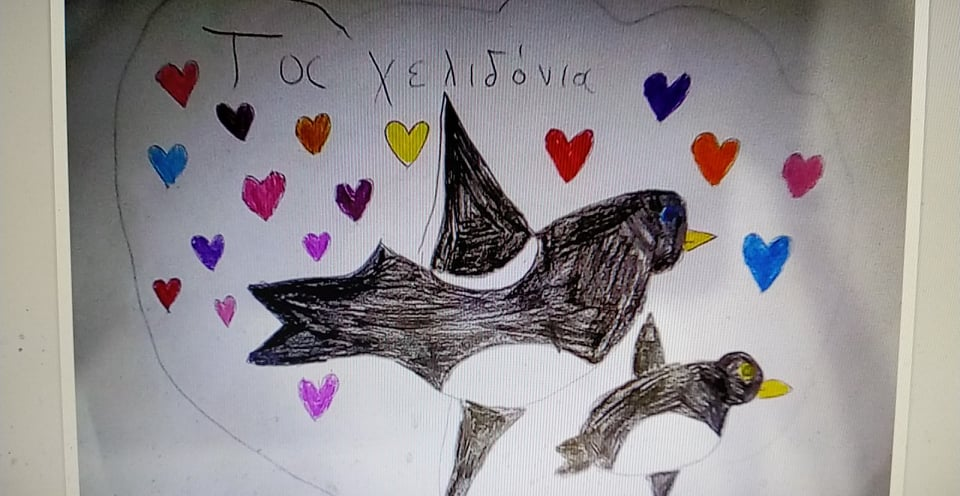 Τος χελιδόνια